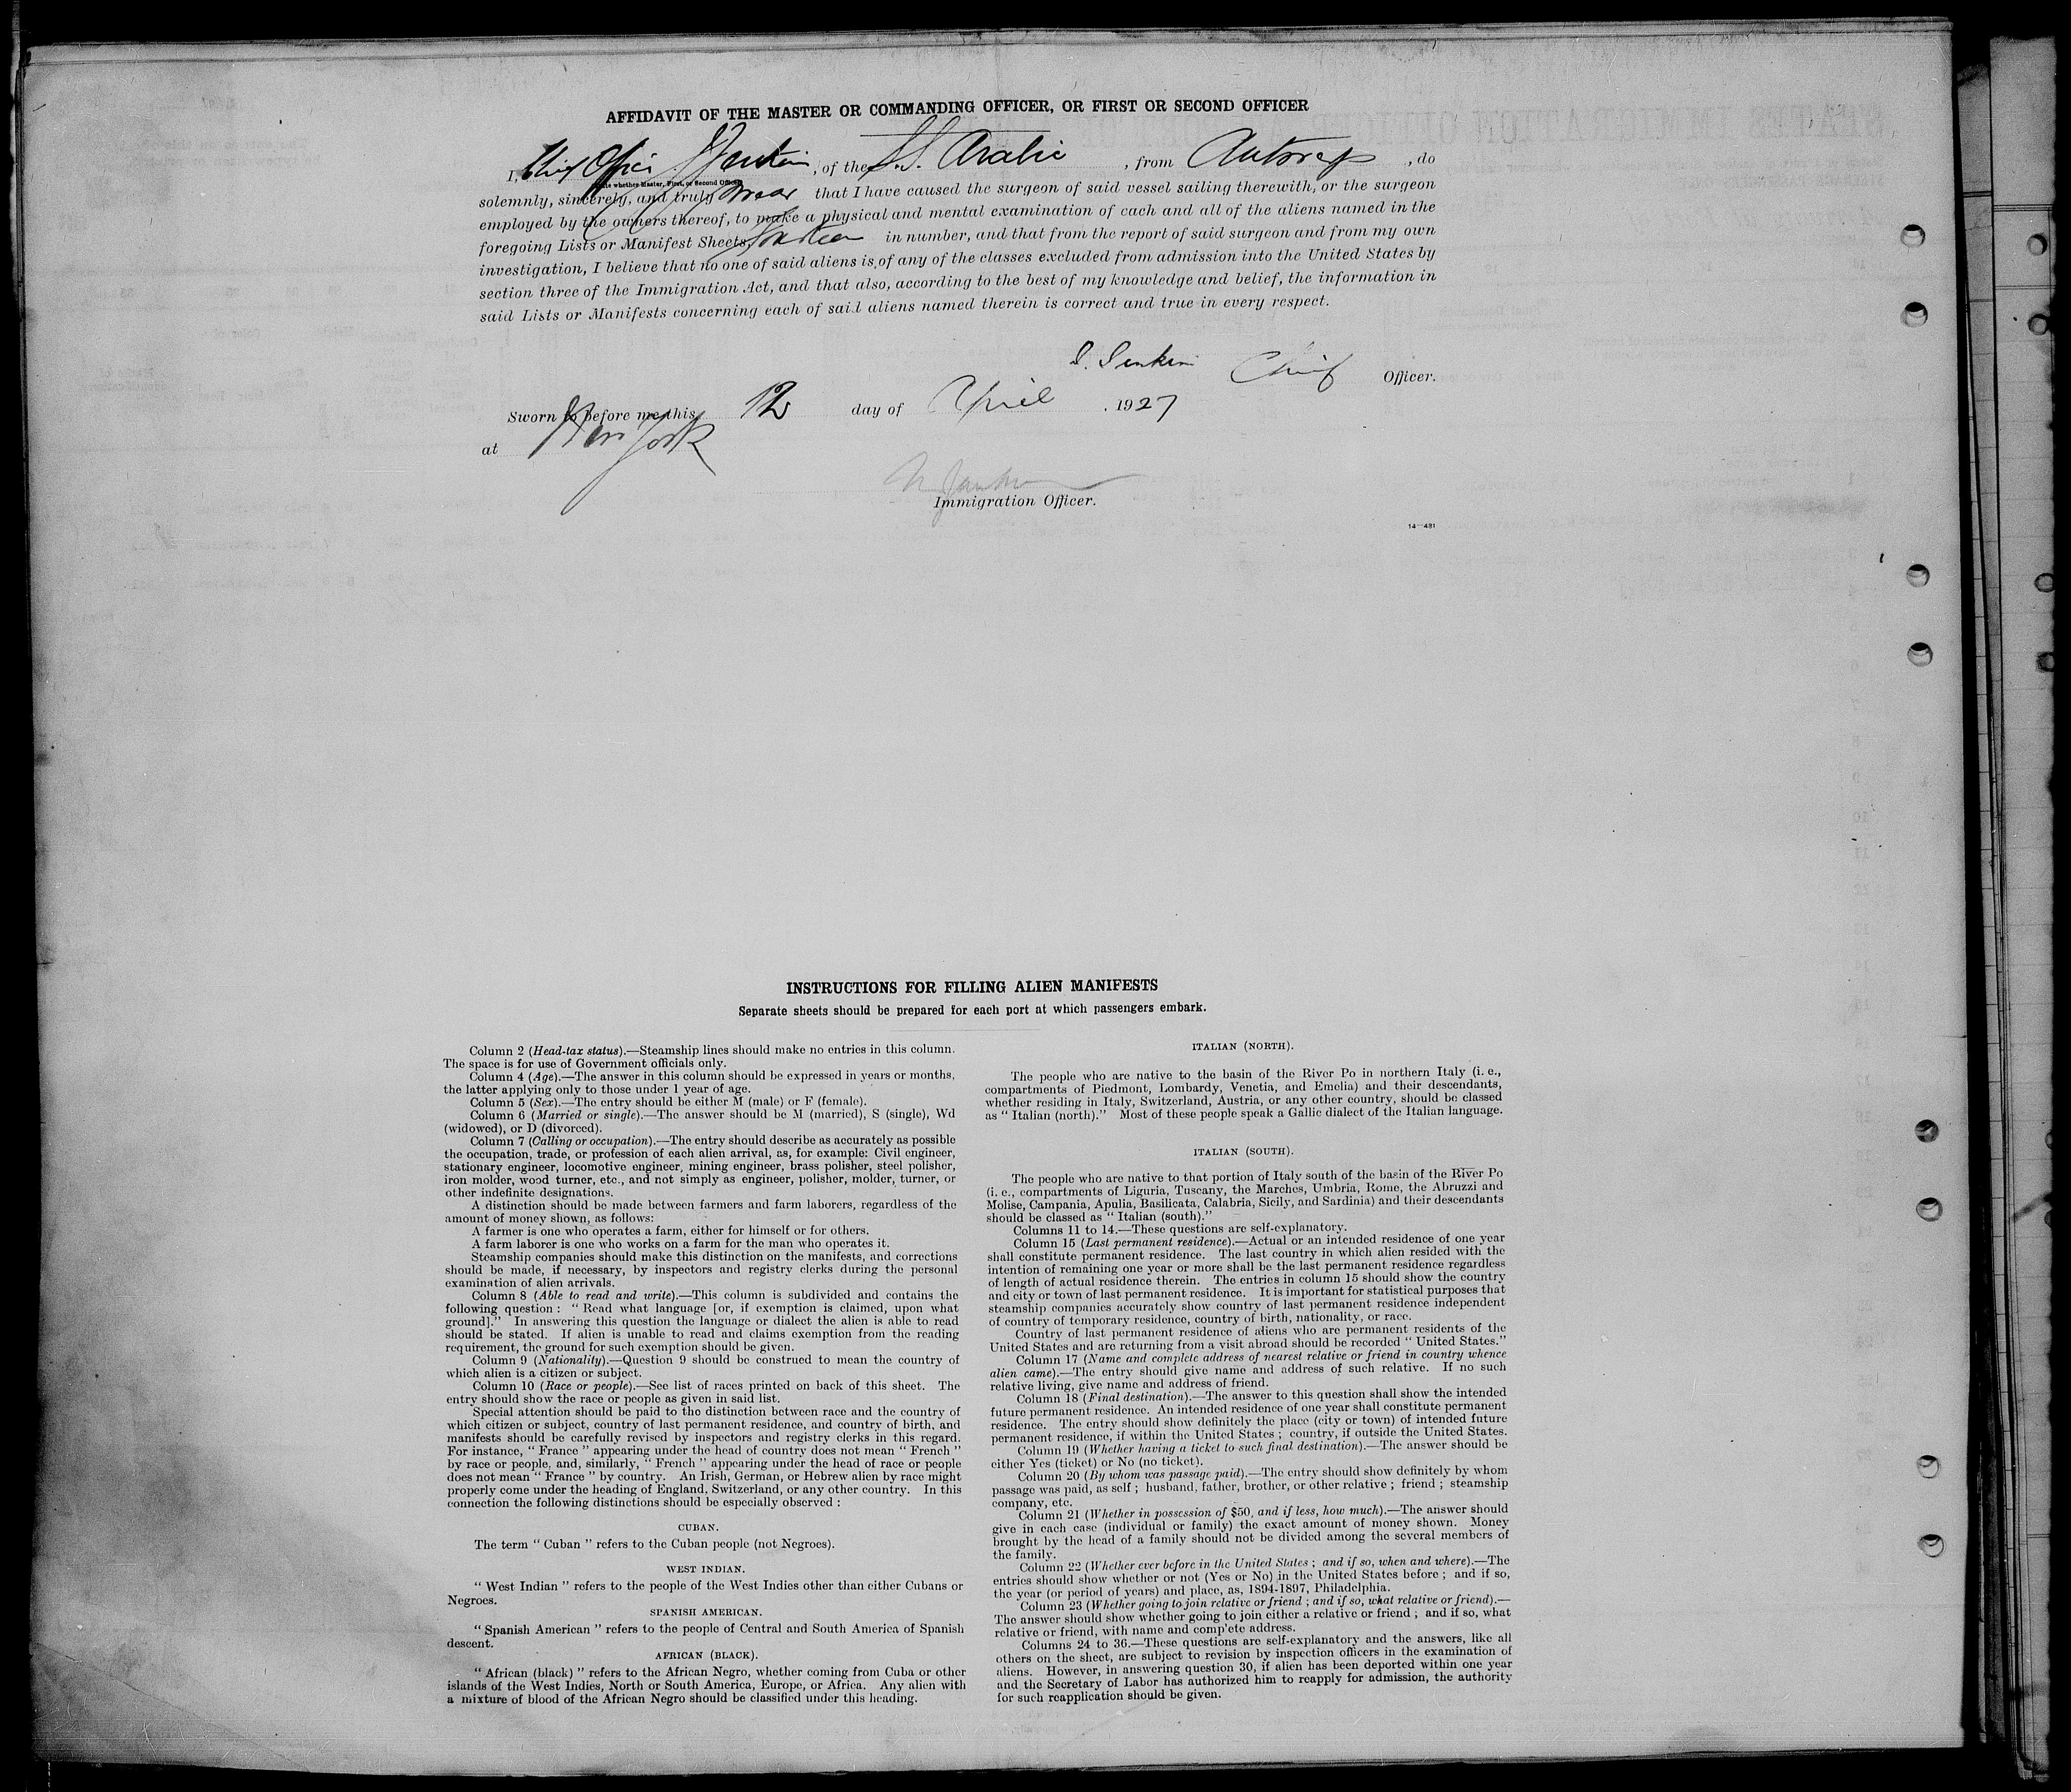 AFFIDAVIT OF THE MASTER OR COMMANDING OFFICER, OR FIRST OR SECOND OFFICER
I, Chief Officer J Jenkin, of the S.S. Arabic, from Antwerp, do
solemnly, sincerely, and truly swear that I have caused the surgeon of said vessel sailing therewith, or the surgeon
employed by the owners thereof, to make a physical and mental examination of each and all of the aliens named in the
foregoing Lists or Manifest Sheets, in number, and that from the report of said surgeon and from my own
investigation, I believe that no one of said aliens is of any of the classes excluded from admission into the United States by
section three of the Immigration Act, and that also, according to the best of my knowledge and belief, the information in
said Lists or Manifests concerning each of said aliens named therein is correct and true in every respect.
J. Jenkin Chief Officer.
Sworn to before me this 12 day of April, 1927
at New York
Immigration Officer.
14—481
INSTRUCTIONS FOR FILLING ALIEN MANIFESTS
Separate sheets should be prepared for each port at which passengers embark.
Column 2 (Head-tax status).—Steamship lines should make no entries in this column.
The space is for use of Government officials only.
Column 4 (Age).—The answer in this column should be expressed in years or months,
the latter applying only to those under 1 year of age.
Column 5 (Sex).—The entry should be either M (male) or F (female).
Column 6 (Married or single).—The answer should be M (married), S (single), Wd
(widowed), or D (divorced).
Column 7 (Calling or occupation).—The entry should describe as accurately as possible
the occupation, trade, or profession of each alien arrival, as, for example: Civil engineer,
stationary engineer, locomotive engineer, mining engineer, brass polisher, steel polisher,
iron molder, wood turner, etc., and not simply as engineer, polisher, molder, turner, or
other indefinite designations.
A distinction should be made between farmers and farm laborers, regardless of the
amount of money shown, as follows:
A farmer is one who operates a farm, either for himself or for others.
A farm laborer is one who works on a farm for the man who operates it.
Steamship companies should make this distinction on the manifests, and corrections
should be made, if necessary, by inspectors and registry clerks during the personal
examination of alien arrivals.
Column 8 (Able to read and write).—This column is subdivided and contains the
following question: "Read what language [or, if exemption is claimed, upon what
ground]." In answering this question the language or dialect the alien is able to read
should be stated. If alien is unable to read and claims exemption from the reading
requirement, the ground for such exemption should be given.
Column 9 (Nationality).—Question 9 should be construed to mean the country of
which alien is a citizen or subject.
Column 10 (Race or people).—See list of races printed on back of this sheet. The
entry should show the race or people as given in said list.
Special attention should be paid to the distinction between race and the country of
which citizen or subject, country of last permanent residence, and country of birth, and
manifests should be carefully revised by inspectors and registry clerks in this regard.
For instance, "France" appearing under the head of country does not mean "French"
by race or people, and, similarly, "French" appearing under the head of race or people
does not mean "France" by country. An Irish, German, or Hebrew alien by race might
properly come under the heading of England, Switzerland, or any other country. In this
connection the following distinctions should be especially observed:
CUBAN.
The term "Cuban" refers to the Cuban people (not Negroes).
WEST INDIAN.
"West Indian" refers to the people of the West Indies other than either Cubans or
Negroes.
SPANISH AMERICAN.
"Spanish American" refers to the people of Central and South America of Spanish
descent.
AFRICAN (BLACK).
"African (black)" refers to the African Negro, whether coming from Cuba or other
islands of the West Indies, North or South America, Europe, or Africa. Any alien with
a mixture of blood of the African Negro should be classified under this heading.
ITALIAN (NORTH).
The people who are native to the basin of the River Po in northern Italy (i. e.,
compartments of Piedmont, Lombardy, Venetia, and Emelia) and their descendants,
whether residing in Italy, Switzerland, Austria, or any other country, should be classed
as "Italian (north)." Most of these people speak a Gallic dialect of the Italian language.
ITALIAN (SOUTH).
The people who are native to that portion of Italy south of the basin of the River Po
(i. e., compartments of Liguria, Tuscany, the Marches, Umbria, Rome, the Abruzzi and
Molise, Campania, Apulia, Basilicata, Calabria, Sicily, and Sardinia) and their descendants
should be classed as "Italian (south)."
Columns 11 to 14.—These questions are self-explanatory.
Column 15 (Last permanent residence).—Actual or an intended residence of one year
shall constitute permanent residence. The last country in which alien resided with the
intention of remaining one year or more shall be the last permanent residence regardless
of length of actual residence therein. The entries in column 15 should show the country
and city or town of last permanent residence. It is important for statistical purposes that
steamship companies accurately show country of last permanent residence independent
of country of temporary residence, country of birth, nationality, or race.
Country of last permanent residence of aliens who are permanent residents of the
United States and are returning from a visit abroad should be recorded "United States."
Column 17 (Name and complete address of nearest relative or friend in country whence
alien came).—The entry should give name and address of such relative. If no such
relative living, give name and address of friend.
Column 18 (Final destination).—The answer to this question shall show the intended
future permanent residence. An intended residence of one year shall constitute permanent
residence. The entry should show definitely the place (city or town) of intended future
permanent residence, if within the United States; country, if outside the United States.
Column 19 (Whether having a ticket to such final destination).—The answer should be
either Yes (ticket) or No (no ticket).
Column 20 (By whom was passage paid).—The entry should show definitely by whom
passage was paid, as self; husband, father, brother, or other relative; friend; steamship
company, etc.
Column 21 (Whether in possession of $50, and if less, how much).—The answer should
give in each case (individual or family) the exact amount of money shown. Money
brought by the head of a family should not be divided among the several members of
the family.
Column 22 (Whether ever before in the United States; and if so, when and where).—The
entries should show whether or not (Yes or No) in the United States before; and if so,
the year (or period of years) and place, as, 1894-1897, Philadelphia.
Column 23 (Whether going to join relative or friend; and if so, what relative or friend).—
The answer should show whether going to join either a relative or friend; and if so, what
relative or friend, with name and complete address.
Columns 24 to 36.—These questions are self-explanatory and the answers, like all
others on the sheet, are subject to revision by inspection officers in the examination of
aliens. However, in answering question 30, if alien has been deported within one year
and the Secretary of Labor has authorized him to reapply for admission, the authority
for such reapplication should be given.